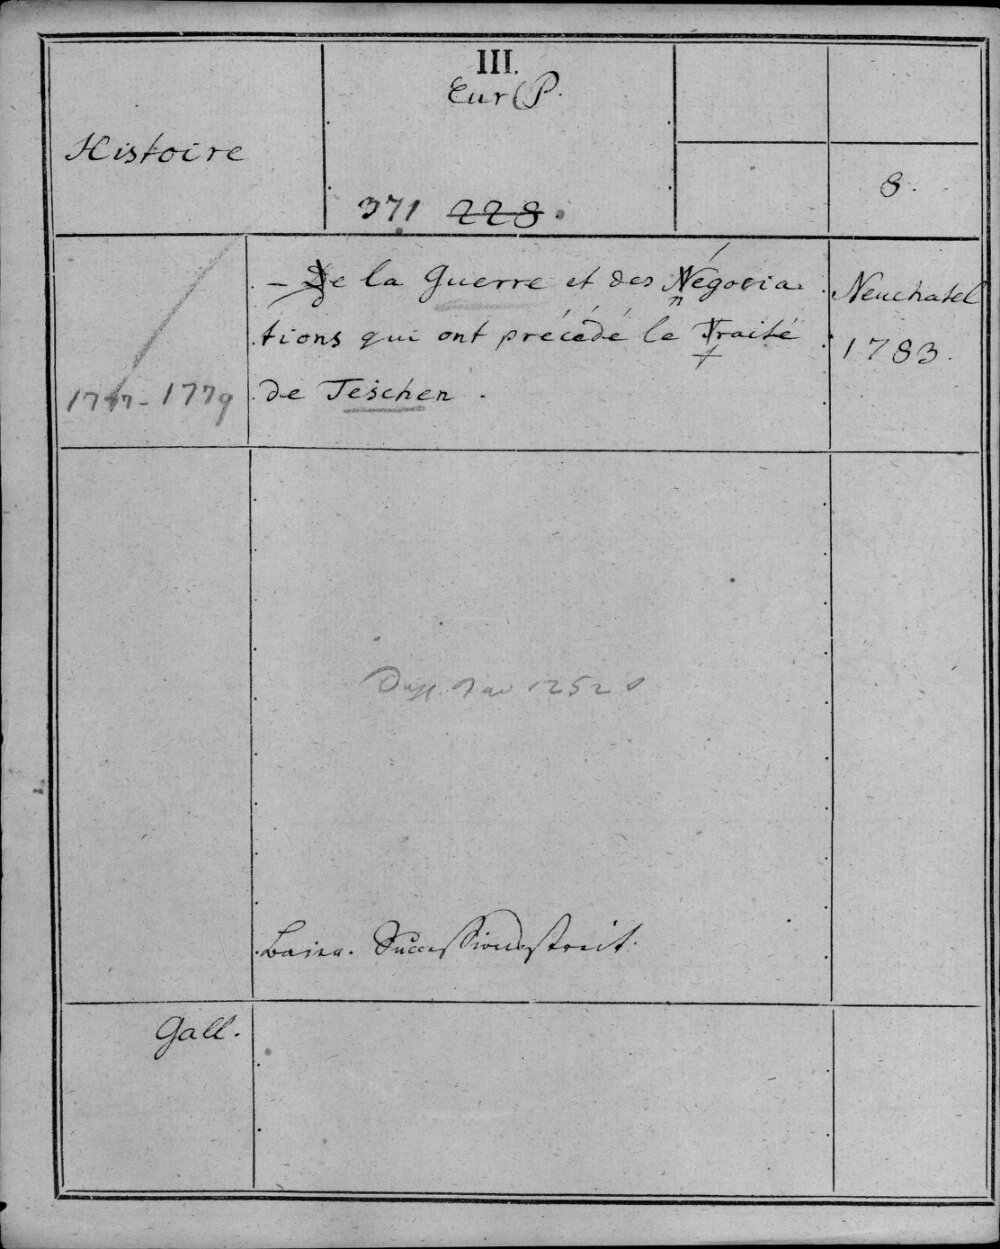 III.
Eur. P.
Histoire
8.
371 228.
– De la Guerre et des Négocia-
tions qui ont précédé le Traité
de Teschen.
Neuchatel
1783.
1777-1779
12528
Baier. Successionsstreit.
Gall.